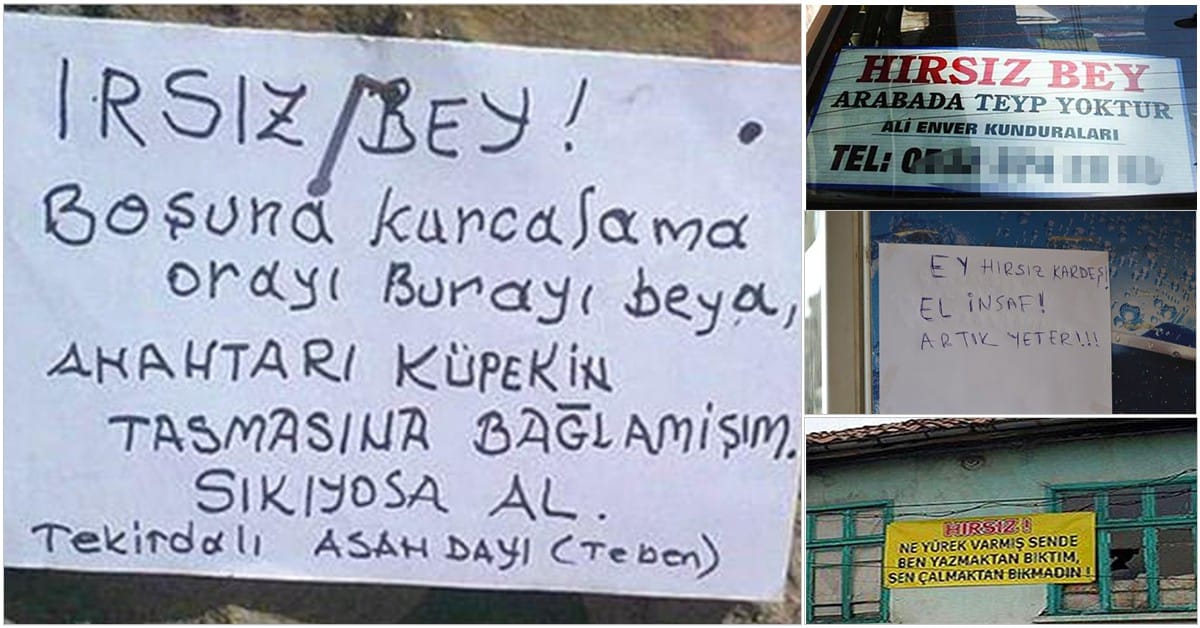 IRSIZ BEY!
Boşuna kurcalama
orayı Burayı beya,
AHAHTARI KÜPEKİN
TASMASINA BAĞLAMiŞIM.
SIKIYOSA AL.
Tekirdalı ASAH DAYI (Teben)
HIRSIZ BEY
ARABADA TEYP YOKTUR
ALİ ENVER KUNDURALARI
TEL:
EY HIRSIZ KARDEŞ!
EL İNSAF!
ARTIK YETER!!!
HIRSIZ!
NE YÜREK VARMIŞ SENDE
BEN YAZMAKTAN BIKTIM,
SEN ÇALMAKTAN BIKMADIN!